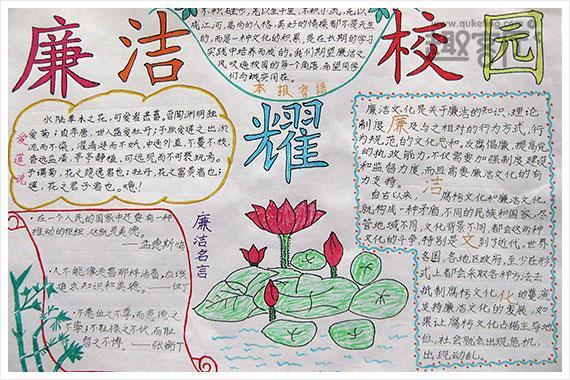 www.quketing.com
廉洁
校园
耀
不积跬步,无以至千里,不积小流,无以
成江河,高尚的人格,美好的情操都不是天生
的,而是一种文化的积累,是在长期的学习
实践中培养而成的。我们期望廉洁之
风吹遍校园的每一个角落,希望同学
们与诚实同在。
本报寄语
爱莲说
水陆草木之花,可爱者甚蕃。晋陶渊明独
爱菊;自李唐,世人盛爱牡丹;予独爱莲之出淤
泥而不染,濯清涟而不妖,中通外直,不蔓不枝,
香远益清,亭亭静植,可远观而不可亵玩焉。
予谓菊,花之隐逸者也;牡丹,花之富贵者也;
莲,花之君子者也。噫!
廉洁名言
·在一个人民的国家中还要有一种
推动的枢纽,这就是美德。
——孟德斯鸠
·人不能像走兽那样活着,应该
追求知识和美德。——但丁
·不患位之不尊,而患德之
不崇;不耻禄之不伙,而耻
智之不博。——张衡
廉洁文化是关于廉洁的知识、理论
制度廉及与之相对的行为方式,行
为规范的文化总和。反腐倡廉,提高党
的执政能力,不仅需要加强制度建设
和监督力度,而且需要廉洁文化的有
力支持。洁
自古以来,腐朽文化和廉洁文化
就构成一种矛盾,不同的民族和国家,尽
管地域不同,文化背景不同,都会这两种
文化的斗争,特别是文到了近代,世界
各国,各地区政府,至少在形
式上都会采取各种办法去
抵制腐朽文化化的蔓流
支持廉洁文化的发展,如
果让腐朽文化占据主导地
位,社会就会出现危机,
出现动乱。